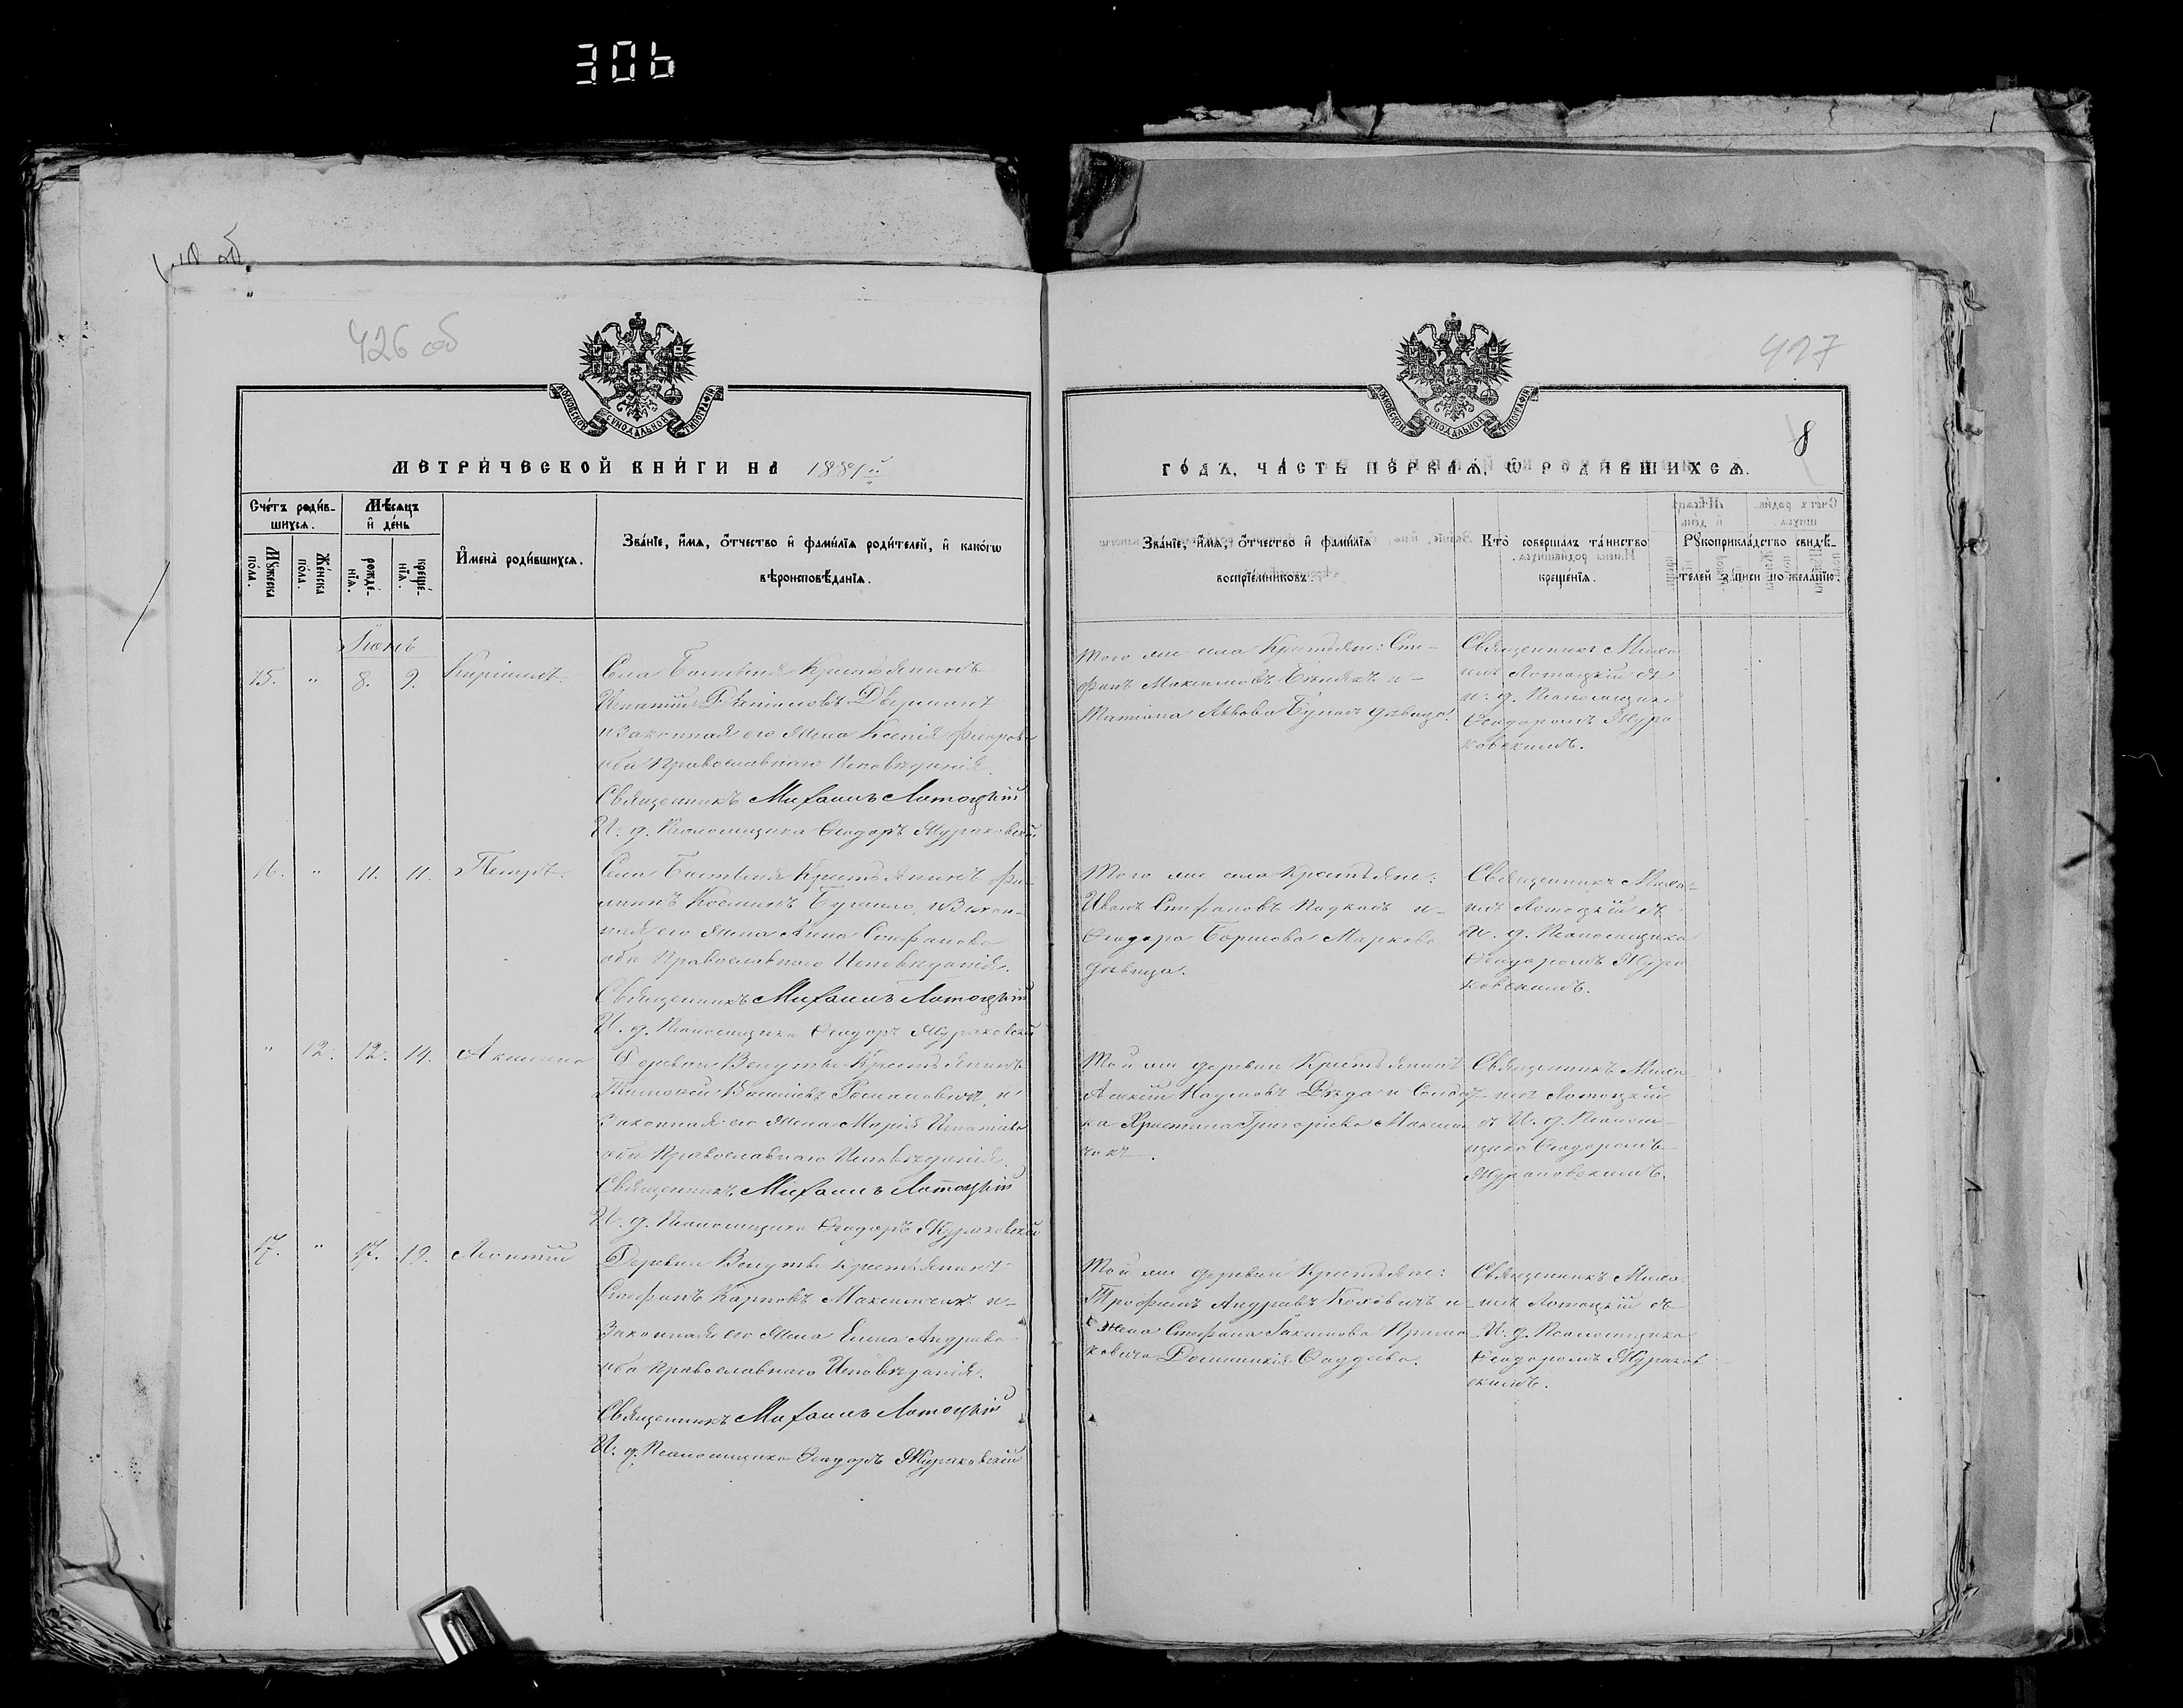 306
426 об
427
8
МЕТРИ́ЧЕСКОЙ КНИ́ГИ НА 1881й
ГО́ДЪ, ЧА́СТЬ ПЕ́РВАЯ, Ѽ РОДИ́ВШИХСЯ.
МОСКОВСКОЙ СѴНОДАЛЬНОЙ ТИПОГРАФІИ
МОСКОВСКОЙ СѴНОДАЛЬНОЙ ТИПОГРАФІИ
Сче́тъ роди́в-
шихся.
Мѣ́сяцъ
и҆ де́нь
Мꙋ́жеска
по́ла.
Же́нска
по́ла.
рожде́-
нїя.
креще́-
нїя.
И҆мена̀ роди́вшихся.
Зва́нїе, и҆́мя, ѻ҆́тчество и҆ фами́лїя роди́телей, и҆ како́гѡ
вѣроисповѣ́данїя.
Зва́нїе, и҆́мя, ѻ҆́тчество и҆ фами́лїя
воспрїе́мниковъ.
Кто̀ соверша́лъ та́инство
креще́нїя.
Рꙋкоприкла́дство свидѣ́-
телей за́писи по жела́нїю.
Іюнь
15. " 8. 9. Кириллъ
Села Крестьянинъ
Игнатій
и Законная его Жена Ксенія
оба Православнаго Исповѣданія.
Священникъ Михаилъ Лотоцкій
И. д. Псаломщика Ѳеодоръ Жураковскій
Того же села Крестьяне: Сте-
фанъ Максимовъ и
Татіана Львова дѣвица.
Священникъ Миха-
илъ Лотоцкій съ
и. д. Псаломщика
Ѳеодоромъ Жура
ковскимъ.
16. " 11. 11. Петръ.
Села Крестьянинъ Фи-
липпъ и Закон-
ная его Жена Анна Стефанова
оба Православнаго Исповѣданія.
Священникъ Михаилъ Лотоцкій
И. д. Псаломщика Ѳеодоръ Жураковскій
Того же села Крестьяне:
Иванъ Стефановъ и
Ѳеодора Борисова Маркова
дѣвица.
Священникъ Миха-
илъ Лотоцкій съ
И. д. Псаломщика
Ѳеодоромъ Жура
ковскимъ.
" 12. 12. 14. Акилина
Деревни Крестьянинъ
Тимоѳей Василіевъ Романовичъ, и
Законная его Жена Марія Игнатіева
оба Православнаго Исповѣданія.
Священникъ Михаилъ Лотоцкій
И. д. Псаломщика Ѳеодоръ Жураковскій
Той же деревни Крестьянинъ
Алексій Наумовъ и
ка Христина Григоріева Максим
чукъ.
Священникъ Миха-
илъ Лотоцкій
съ И. д. Псалом-
щика Ѳеодоромъ
Жураковскимъ.
17. " 17. 19. Леонтій
Деревни Крестьянинъ
Стефанъ Карповъ и
Законная его Жена Елена Андреева
оба Православнаго Исповѣданія.
Священникъ Михаилъ Лотоцкій
И. д. Псаломщика Ѳеодоръ Жураковскій
Той же деревни Крестьяне:
Трофимъ Андреевъ и
жена Стефана
Ѳаддеева.
Священникъ Миха-
илъ Лотоцкій съ
И. д. Псаломщика
Ѳеодоромъ Жураков
скимъ.